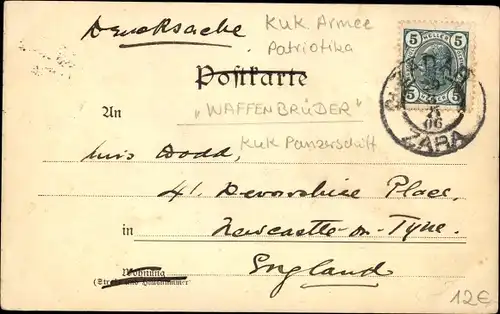 Drucksache.
KuK Armee
Patriotika
5 HELLER 5
Postkarte
"WAFFENBRÜDER"
An
KuK Panzerschiff
Miss Dodd,
41. Devonshire Place,
in Newcastle-on-Tyne.
England.
Wohnung
(Straße und Hausnummer)
ZARA
06
12€